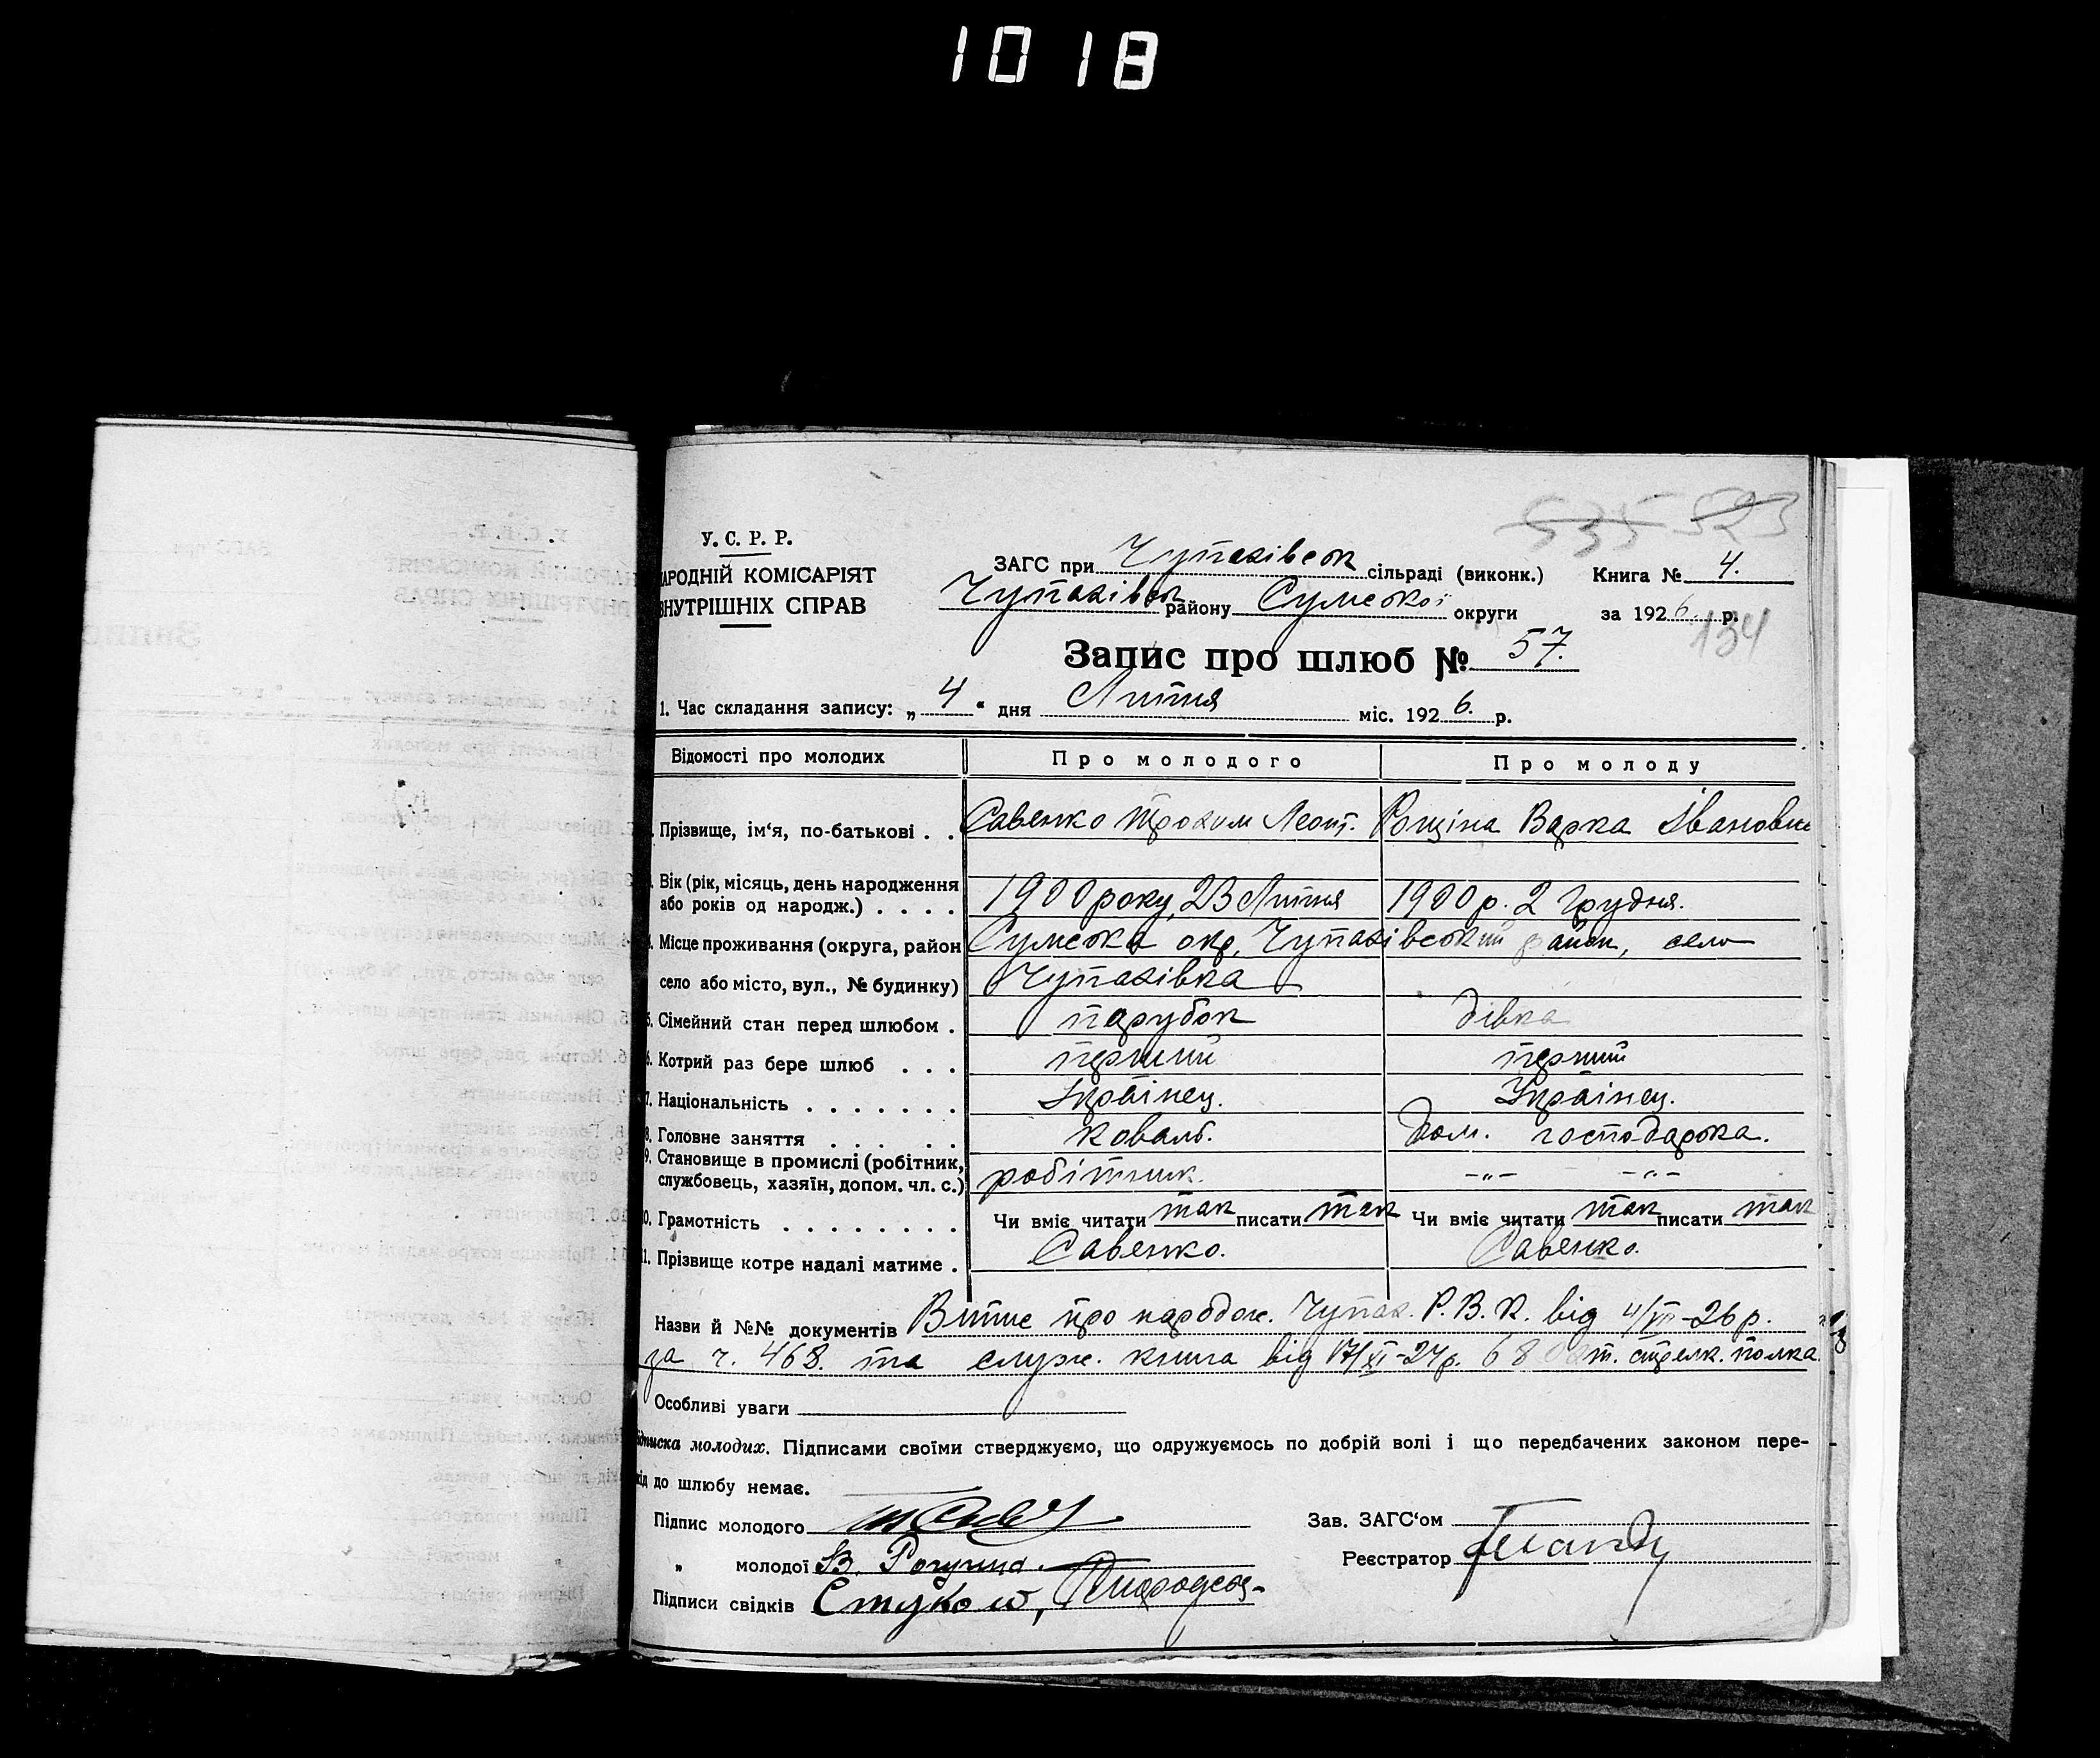 1018
535 523
У. С. Р. Р.
АРОДНІЙ КОМІСАРІЯТ
ВНУТРІШНІХ СПРАВ
ЗАГС при Чупахівськ сільраді (виконк.) Книга № 4.
Чупахівськ району Сумської округи за 1926 р.
134
Запис про шлюб № 57.
1. Час складання запису: „ 4 “ дня Липня міс. 1926. р.
Відомості про молодих Про молодого Про молоду
Прізвище, ім‘я, по-батькові . . Савенко Трохим Леонт. Рощіна Варка Івановна
Вік (рік, місяць, день народження
або років од народж.) . . . . 1900 року, 23 Липня 1900 р. 2 Грудня.
Місце проживання (округа, район Сумська окр. Чупахівський район, село
село або місто, вул., № будинку) Чупахівка
5. Сімейний стан перед шлюбом . парубок дівка
6. Котрий раз бере шлюб . . . перший перший
7. Національність . . . . . . . Українец. Українец.
8. Головне заняття . . . . . коваль. Дом. господарка.
9. Становище в промислі (робітник,
службовець, хазяїн, допом. чл. с.) робітник. -„- -„-
0. Грамотність . . . . . . . . Чи вміє читати так писати так Чи вміє читати так писати так
1. Прізвище котре надалі матиме . Савенко. Савенко.
Назви й №№ документів Витис про народж. Чупах. Р. В. К. від 4/VII-26 р.
за ч. 468. та служ. книга від 17/XI-24р. 68 стрелк. полка.
Особливі уваги
ідписка молодих. Підписами своїми стверджуємо, що одружуємось по добрій волі і що передбачених законом пере-
ід до шлюбу немає.
Підпис молодого Зав. ЗАГС‘ом
„ молодої В. Рощина. Реєстратор
Підписи свідків